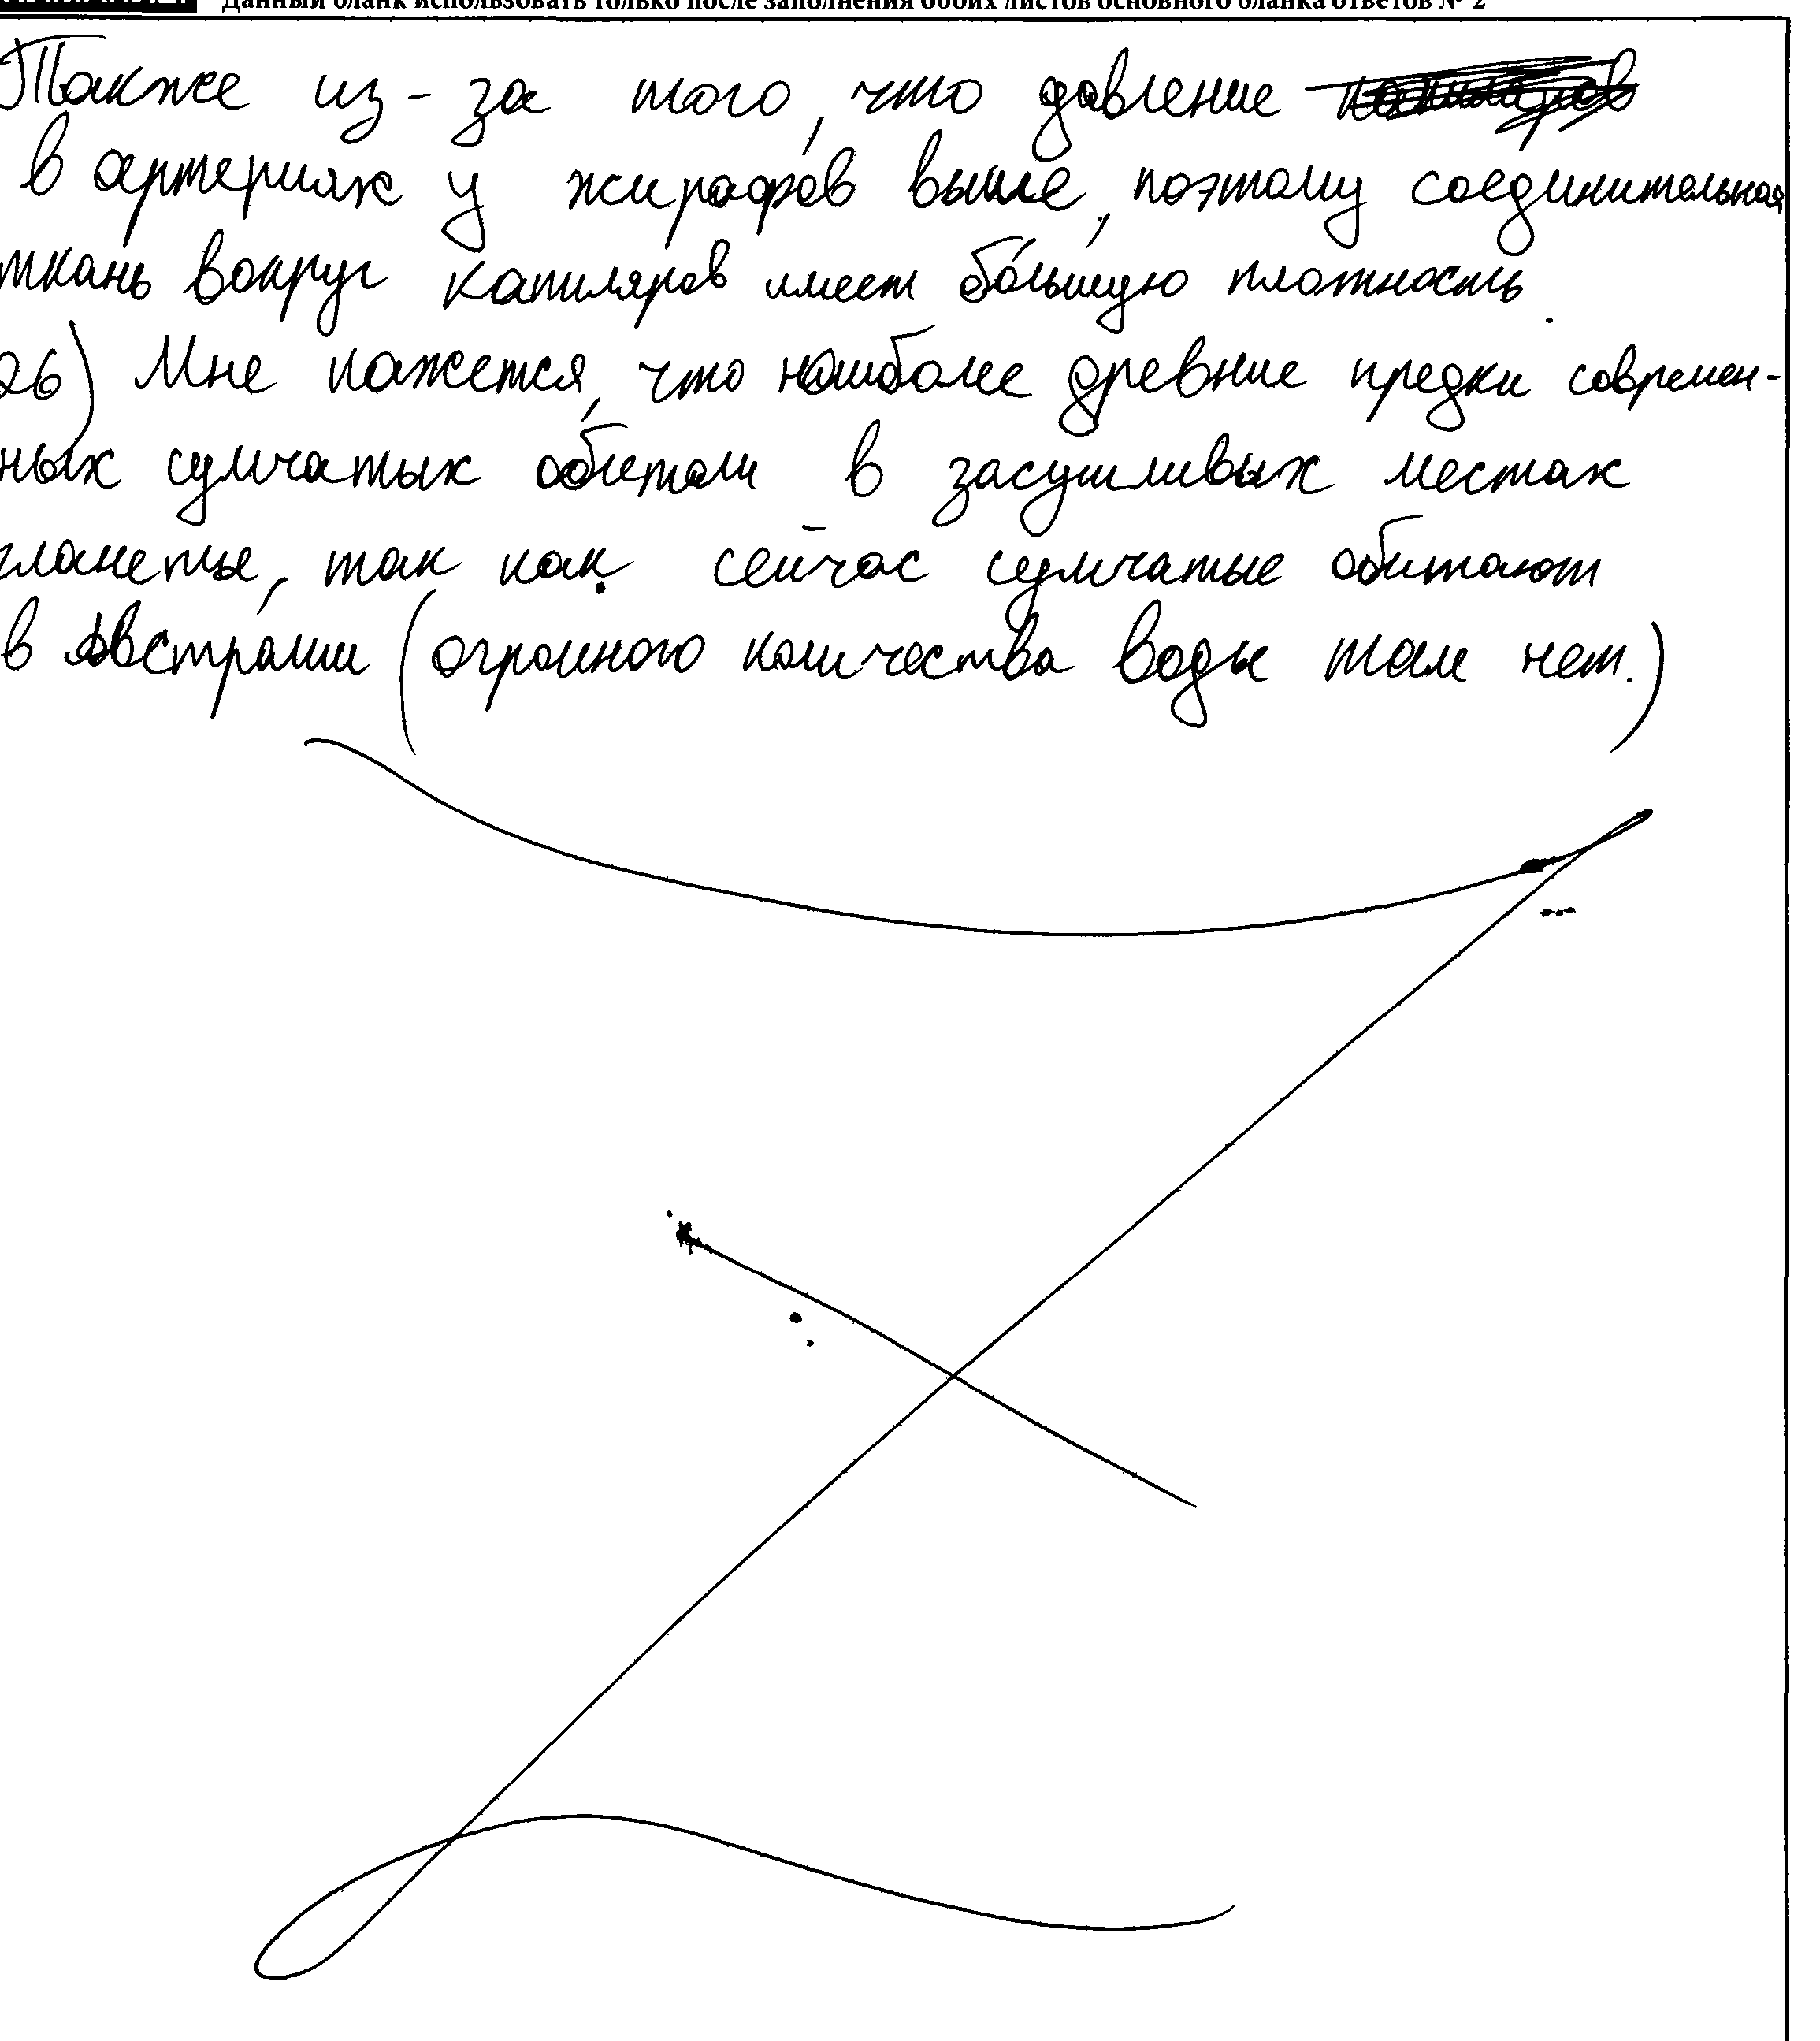 Данный бланк использовать только после заполнения обоих листов основного бланка ответов № 2
Также из-за того, что давление
в артериях у жирафов выше, поэтому соединительная
ткань вокруг капиляров имеет бо́льшую плотность.
26) Мне кажется, что наиболее древние предки современ-
ных сумчатых обитали в засушливых местах
планеты, так как сейчас сумчатые обитают
в Австралии (огромного количества воды там нет.)